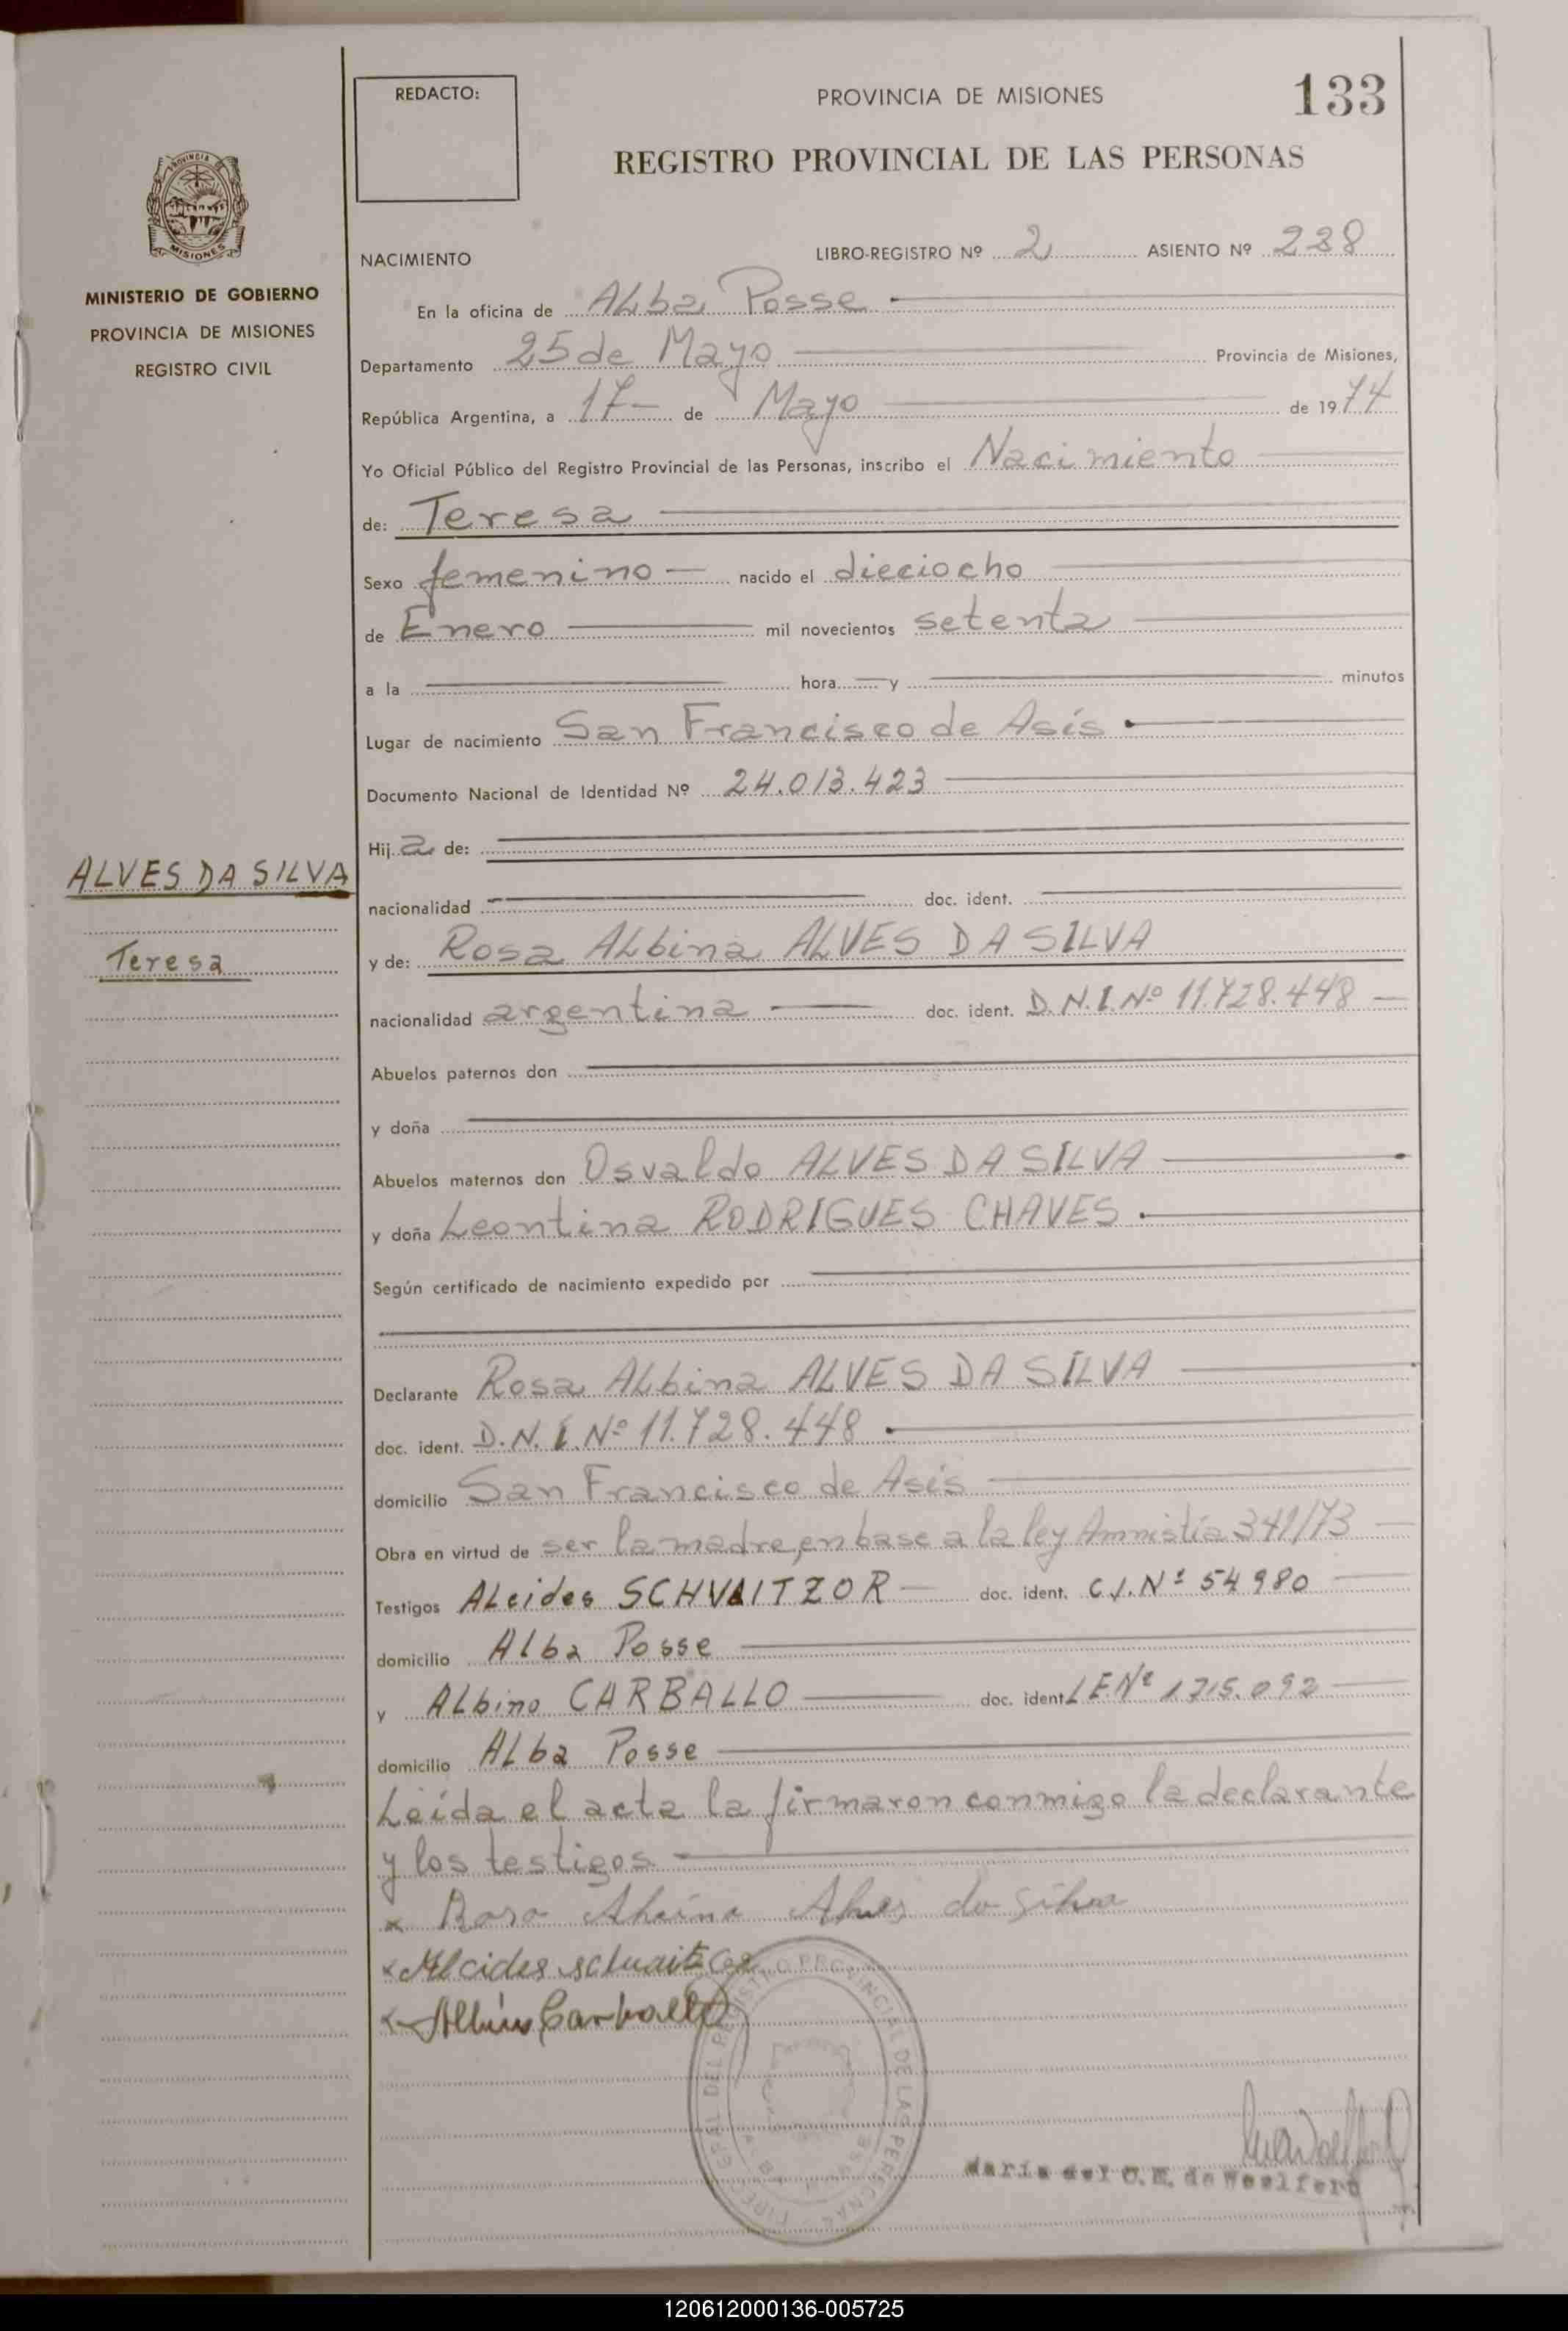 REDACTO:
PROVINCIA DE MISIONES
133
REGISTRO PROVINCIAL DE LAS PERSONAS
PROVINCIA DE
MISIONES
MINISTERIO DE GOBIERNO
PROVINCIA DE MISIONES
REGISTRO CIVIL
NACIMIENTO
LIBRO-REGISTRO Nº 2 ASIENTO Nº 228
En la oficina de ALba Posse
Departamento 25 de Mayo Provincia de Misiones,
República Argentina, a 17 de Mayo de 1974
Yo Oficial Público del Registro Provincial de las Personas, inscribo el Nacimiento
de: Teresa
Sexo femenino nacido el dieciocho
de Enero mil novecientos setenta
a la hora y minutos
Lugar de nacimiento San Francisco de Asís
Documento Nacional de Identidad Nº 24.013.423
Hija de:
ALVES DA SILVA
Teresa
nacionalidad doc. ident.
y de: Rosa ALbina ALVES DA SILVA
nacionalidad argentina doc. ident. D.N.I.Nº 11.728.448
Abuelos paternos don
y doña
Abuelos maternos don Osvaldo ALVES DA SILVA
y doña Leontina RODRIGUES CHAVES
Según certificado de nacimiento expedido por
Declarante Rosa ALbina ALVES DA SILVA
doc. ident. D.N.I.Nº 11.728.448
domicilio San Francisco de Asís
Obra en virtud de ser la madre, en base a la ley Amnistía 341/73
Testigos ALcides SCHVAITZOR doc. ident. C.I.Nº 54980
domicilio Alba Posse
y ALbino CARBALLO doc. ident LENº 1715.092
domicilio ALba Posse
Leída el acta la firmaron conmigo la declarante
y los testigos
x Rosa Albina Alves da Silva
x Alcides Schvaitzor
x Albino Carballo
REGISTRO PROVINCIAL DE LAS PERSONAS
María del C. E. de Woelfert
120612000136-005725